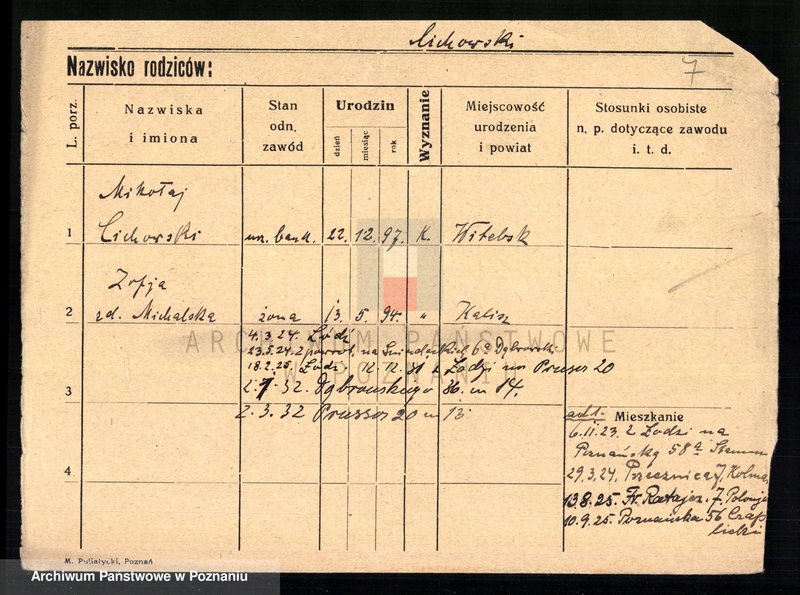 Cichowski
Nazwisko rodziców:
7
L. porz.
Nazwiska
i imiona
Stan
odn.
zawód
Urodzin
dzień
miesiąc
rok
Wyznanie
Miejscowość
urodzenia
i powiat
Stosunki osobiste
n. p. dotyczące zawodu
i. t. d.
Mikołaj
1 Cichowski urz. bank. 22. 12. 97. K. Witebsk
Zofja
2 zd. Michalska żona 13. 5. 94. " Kalisz
4.3.24. Łódź
23.5.24. z powrot. na 6a Dąbrowski
18.2.25. Łódź 12.12.31 z Łodzi na Prusa 20
3 2.1.32. Dąbrowskiego 86. m 14.
2.3.32 Prussa 20 m 13.
Mieszkanie
6.11.23. z Łodzi na
Poznańską 58a
4 29.3.24. Przecznica 7,
13.8.25. Fr. Ratajcz. 7.
10.9.25. Poznańska 56
licki
M. Putiatycki, Poznań
ARCHIWUM PAŃSTWOWE
W POZNANIU
Archiwum Państwowe w Poznaniu